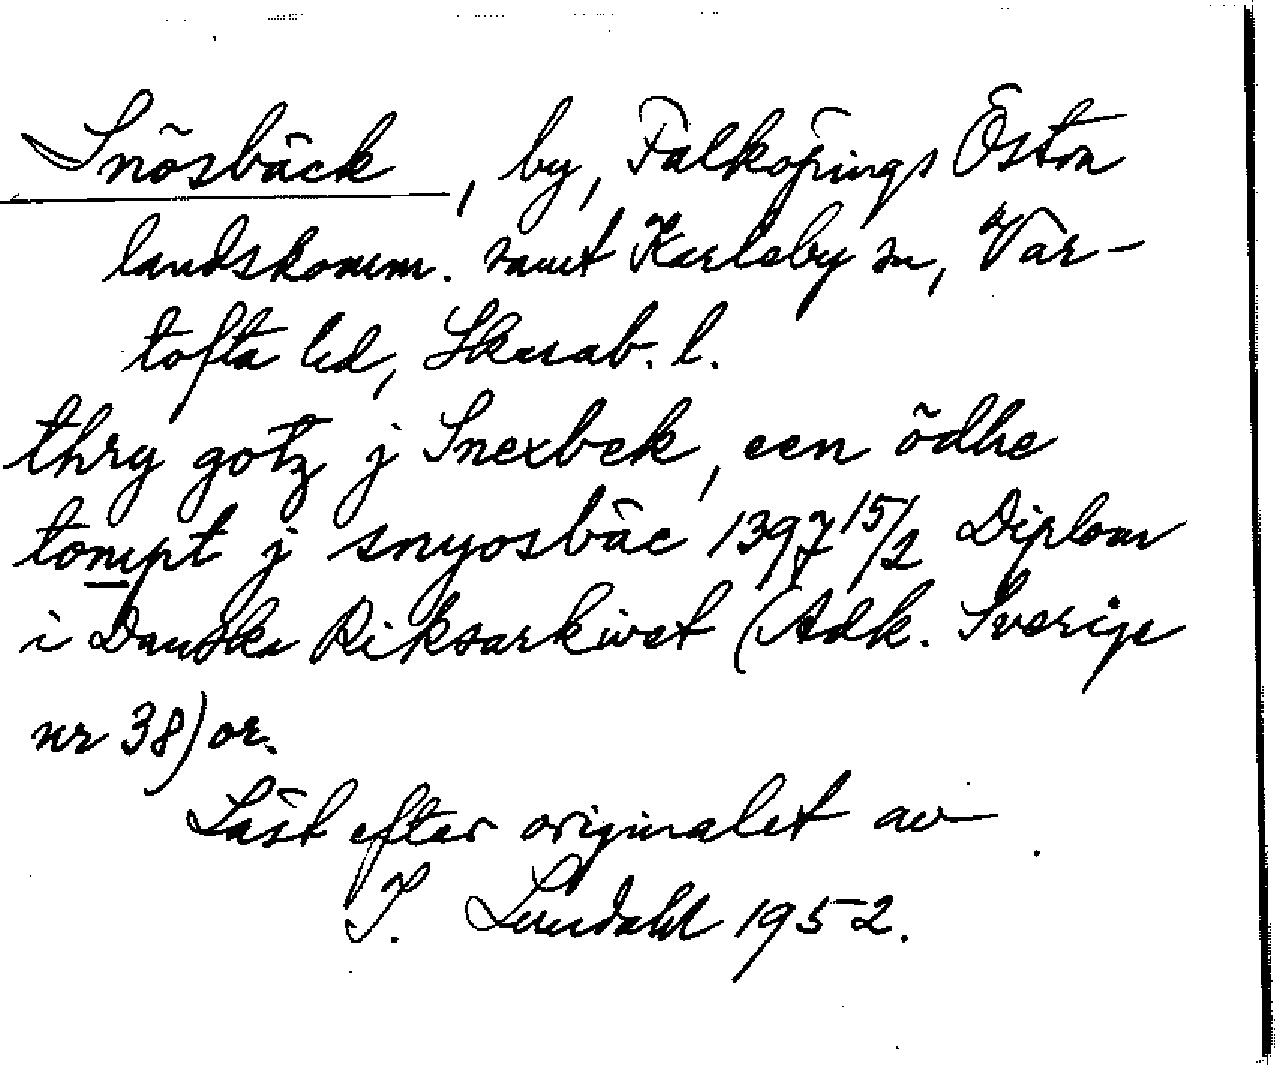 Snösbäck, by, Falköpings Östra
landskomm. samt Karleby sn, Var-
tofta hd, Skarab. l.
thry gotz j Snexbek, een ödhe
tompt j snyosbäc 1397 15/2 Diplom
i Danska Riksarkivet (Adk. Sverige
nr 38) or.
Läst efter originalet av
I. Lundahl 1952.